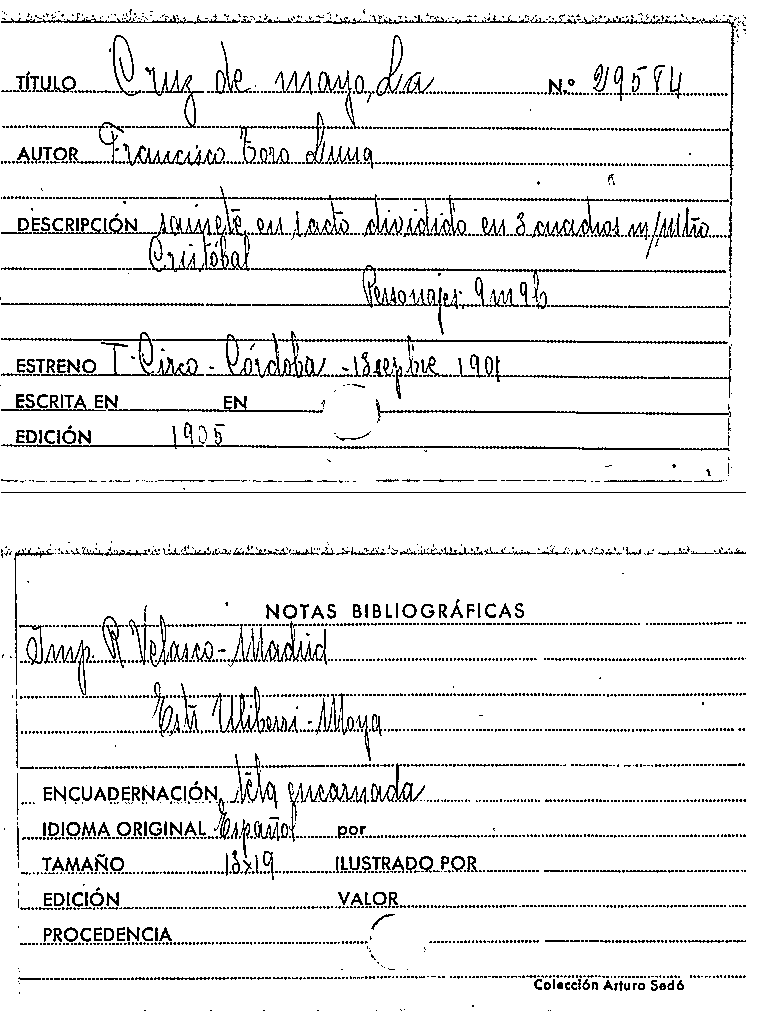 TÍTULO Cruz de mayo, La N.º 29584
AUTOR Francisco Toro Luna
DESCRIPCIÓN sainete en 1 acto dividido en 3 cuadros m/Mtro
Cristóbal
Personajes: 9m 9h
ESTRENO T. Circo - Córdoba - 13 sepbre 1901
ESCRITA EN EN
EDICIÓN 1905
NOTAS BIBLIOGRÁFICAS
Imp. R Velasco - Madrid
Estr Uliberri - Moya
ENCUADERNACIÓN tela encarnada
IDIOMA ORIGINAL Español por
TAMAÑO 13x19 ILUSTRADO POR
EDICIÓN VALOR
PROCEDENCIA
Colección Arturo Sedó